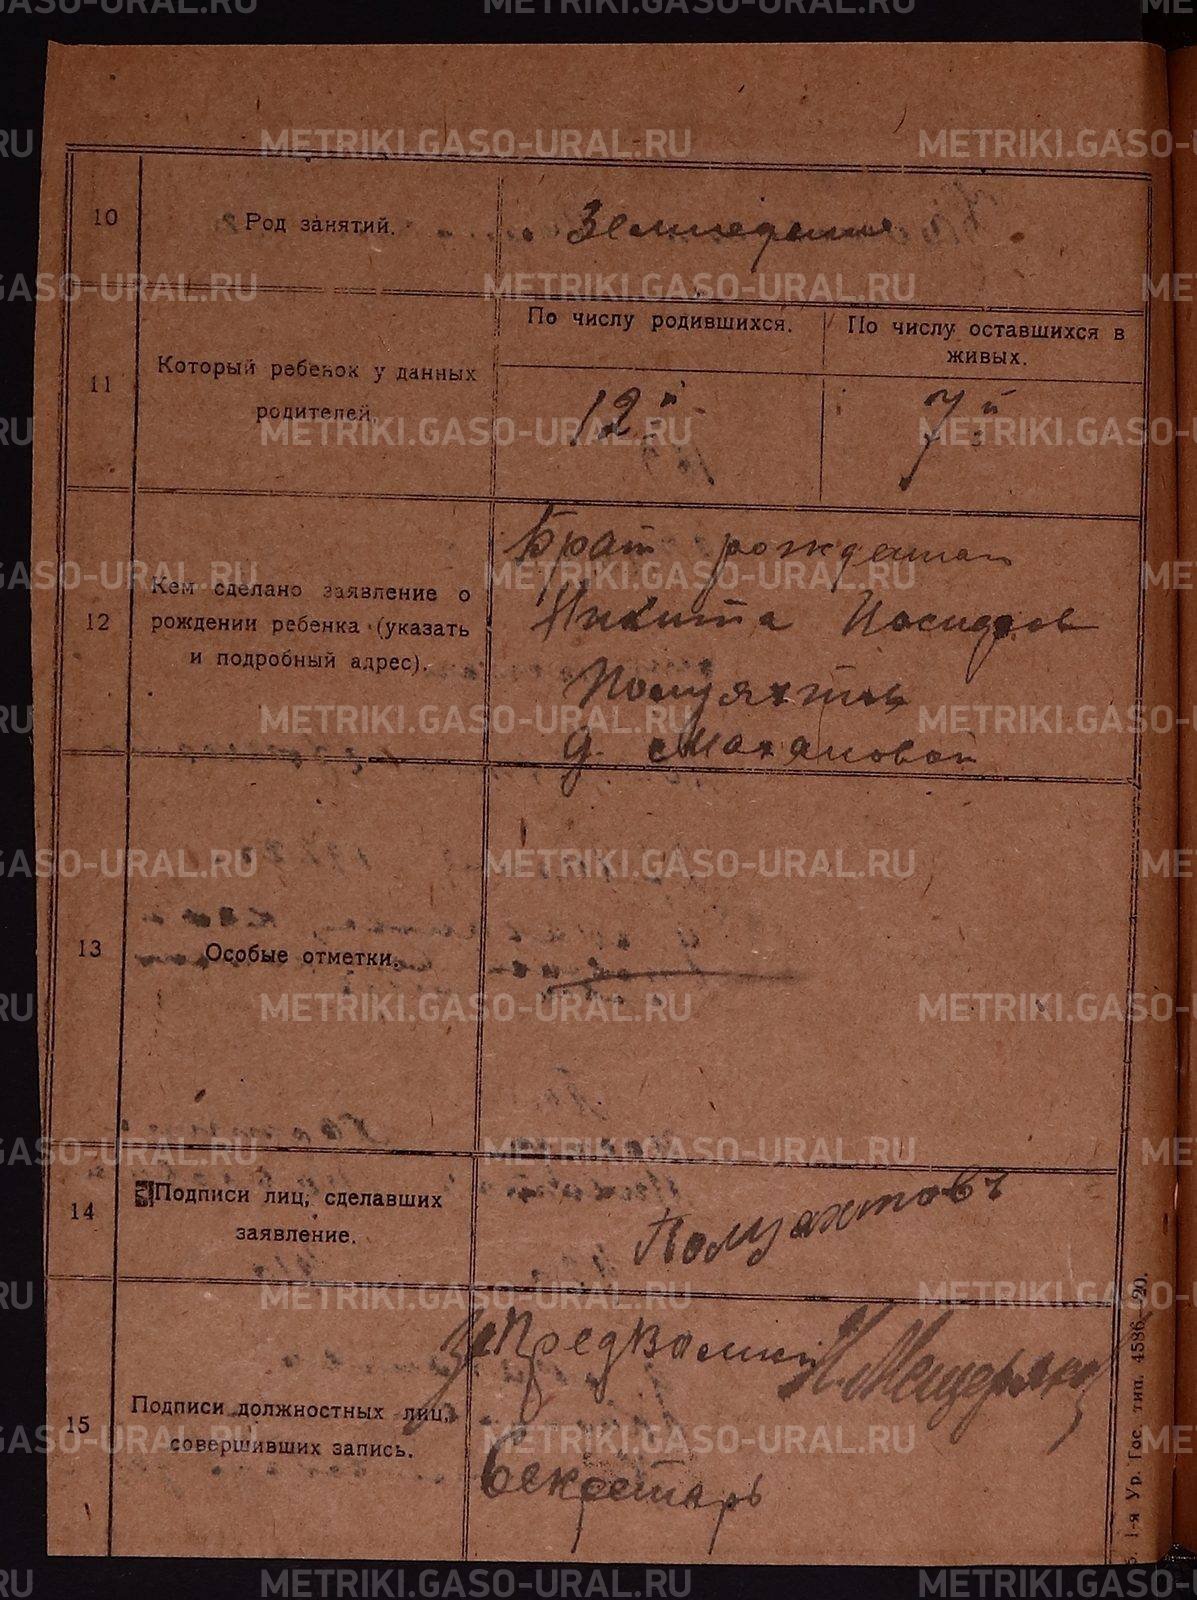 METRIKI.GASO-URAL.RU
10
Род занятий.
Земледелие
11
Который ребенок у данных
родителей.
По числу родившихся.
По числу оставшихся в
живых.
12й
7й
12
Кем сделано заявление о
рождении ребенка (указать
и подробный адрес).
Брат
Никита
Полуяхтов
д.
13
Особые отметки.
14
Подписи лиц, сделавших
заявление.
Полуяхтовъ
15
Подписи должностных лиц,
совершивших запись.
За Пред
Мещеряков
Секретарь
1-я Ур. Гос. тип. 4586—20.